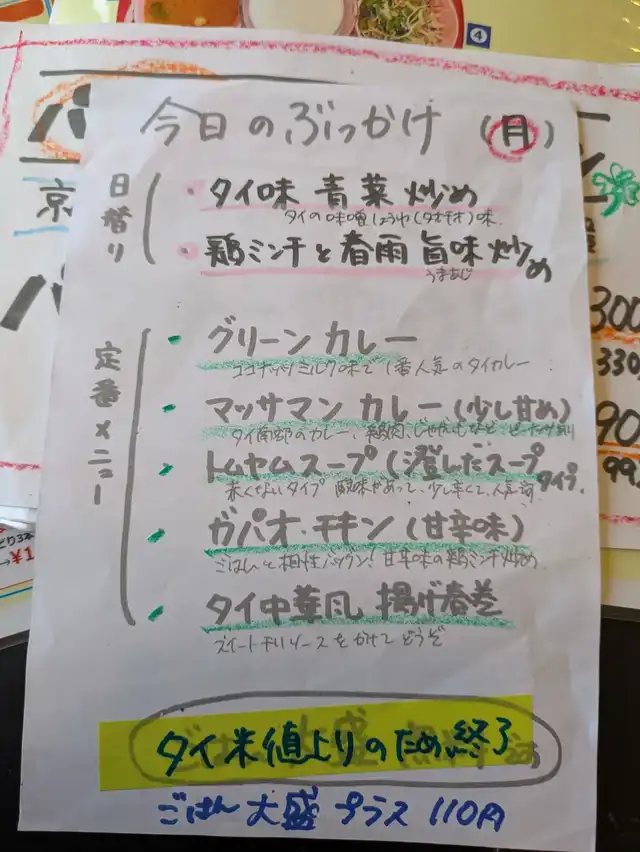 ④
今日のぶっかけ (月)
日替り
・タイ味 青菜炒め
タイの味噌しょうゆ(タオチオ)味
・鶏ミンチと春雨 旨味炒め
うまあじ
定番メニュー
- グリーンカレー
ココナッツミルク味で1番人気のタイカレー
- マッサマンカレー(少し甘め)
タイ南部のカレー、鶏肉、じゃがいもなど、ピーナッツ
- トムヤムスープ(澄んだスープタイプ。
赤くないタイプ 酸味があって、少し辛くて、人気
- ガパオ・チキン(甘辛味)
ごはんと相性バツグン!甘辛味の鶏ミンチ炒め
- タイ中華風 揚げ春巻
スイートチリソースをかけてどうぞ
タイ米値上りのため終了
ごはん 大盛 プラス 110円
京
300
330
90
99